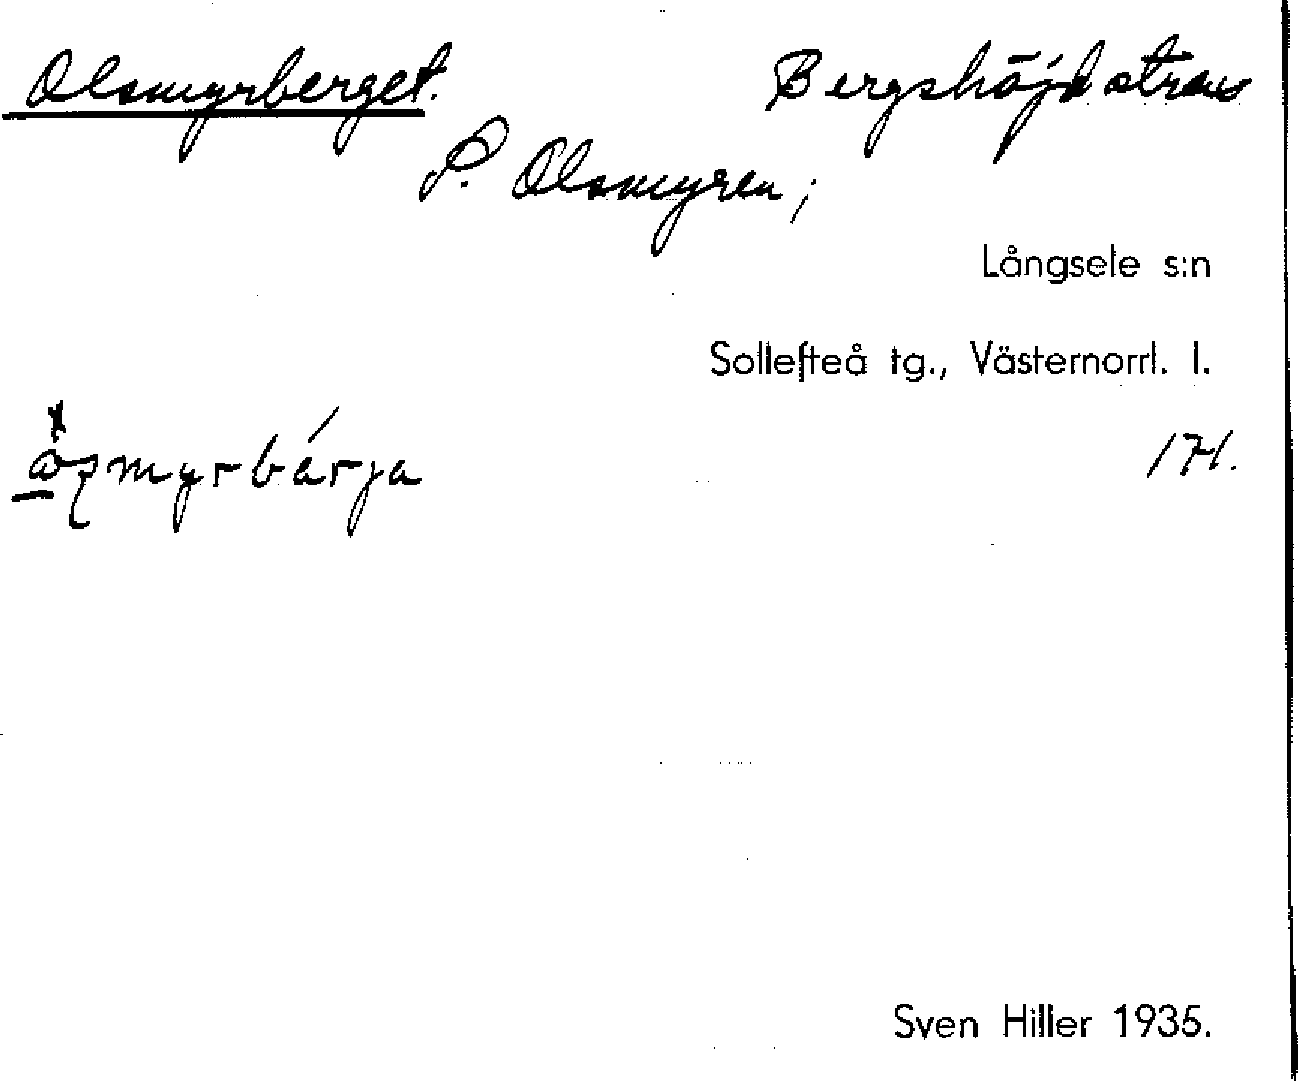 Olsmyrberget. Bergshöjd strax
S. Olsmyren;
Långsele s:n
Sollefteå tg., Västernorrl. l.
171.
Sven Hiller 1935.